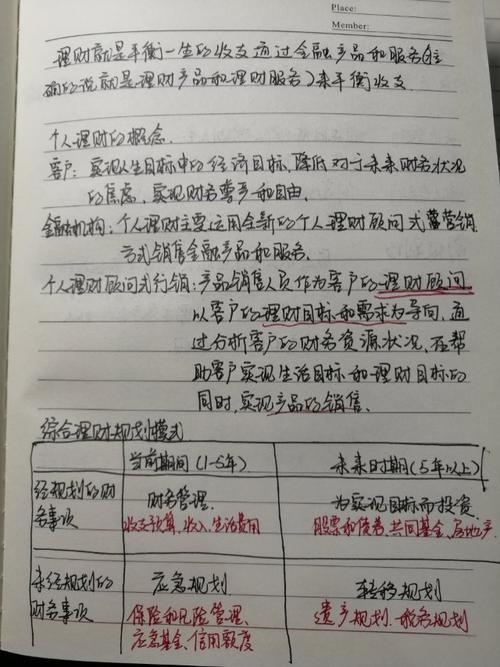 Place:
Member:
理财就是平衡一生的收支通过金融产品和服务(准
确的说就是理财产品和理财服务)来平衡收支
个人理财的概念.
客户:实现人生目标中的经济目标,降低对于未来财务状况
的焦虑,实现财务尊严和自由.
金融机构:个人理财主要运用全新的个人理财顾问式营销
方式销售金融产品和服务.
个人理财顾问式行销:产品销售人员作为客户的理财顾问
以客户的理财目标和需求为导向,通
过分析客户的财务资源状况,在帮
助客户实现生活目标和理财目标的
同时,实现产品的销售.
综合理财规划模式
当前期间(1-5年) 未来时期(5年以上)
经规划的财务事项 财务管理. 为实现目标而投资
收支预算、收入、生活费用 股票和债券、共同基金、房地产
未经规划的财务事项 应急规划 转移规划
保险和风险管理、 遗产规划、税务规划
应急基金、信用额度